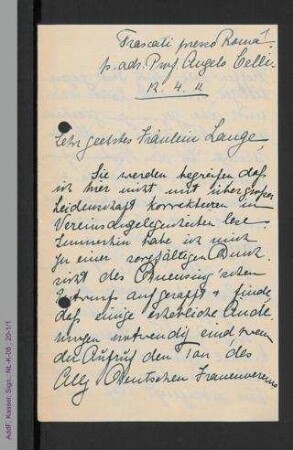 Frascati presso Roma
p. adr. Prof. Angelo Celli.
12. 4. 11
Sehr geehrtes Fräulein Lange,
Sie werden begreifen daß
ich hier nicht mit übergroßer
Leidenschaft Korrekturen in
Vereinsangelegenheiten lese.
Immerhin habe ich mich
zu einer sorgfältigen Durch
sicht des
Entwurf aufgerafft & finde,
daß einige erhebliche Ände
rungen notwendig sind, wenn
der Aufruf den Ton des
Allg Deutschen Frauenvereins
AddF, Kassel, Sign.: NL-K-08 ; 20-1/1